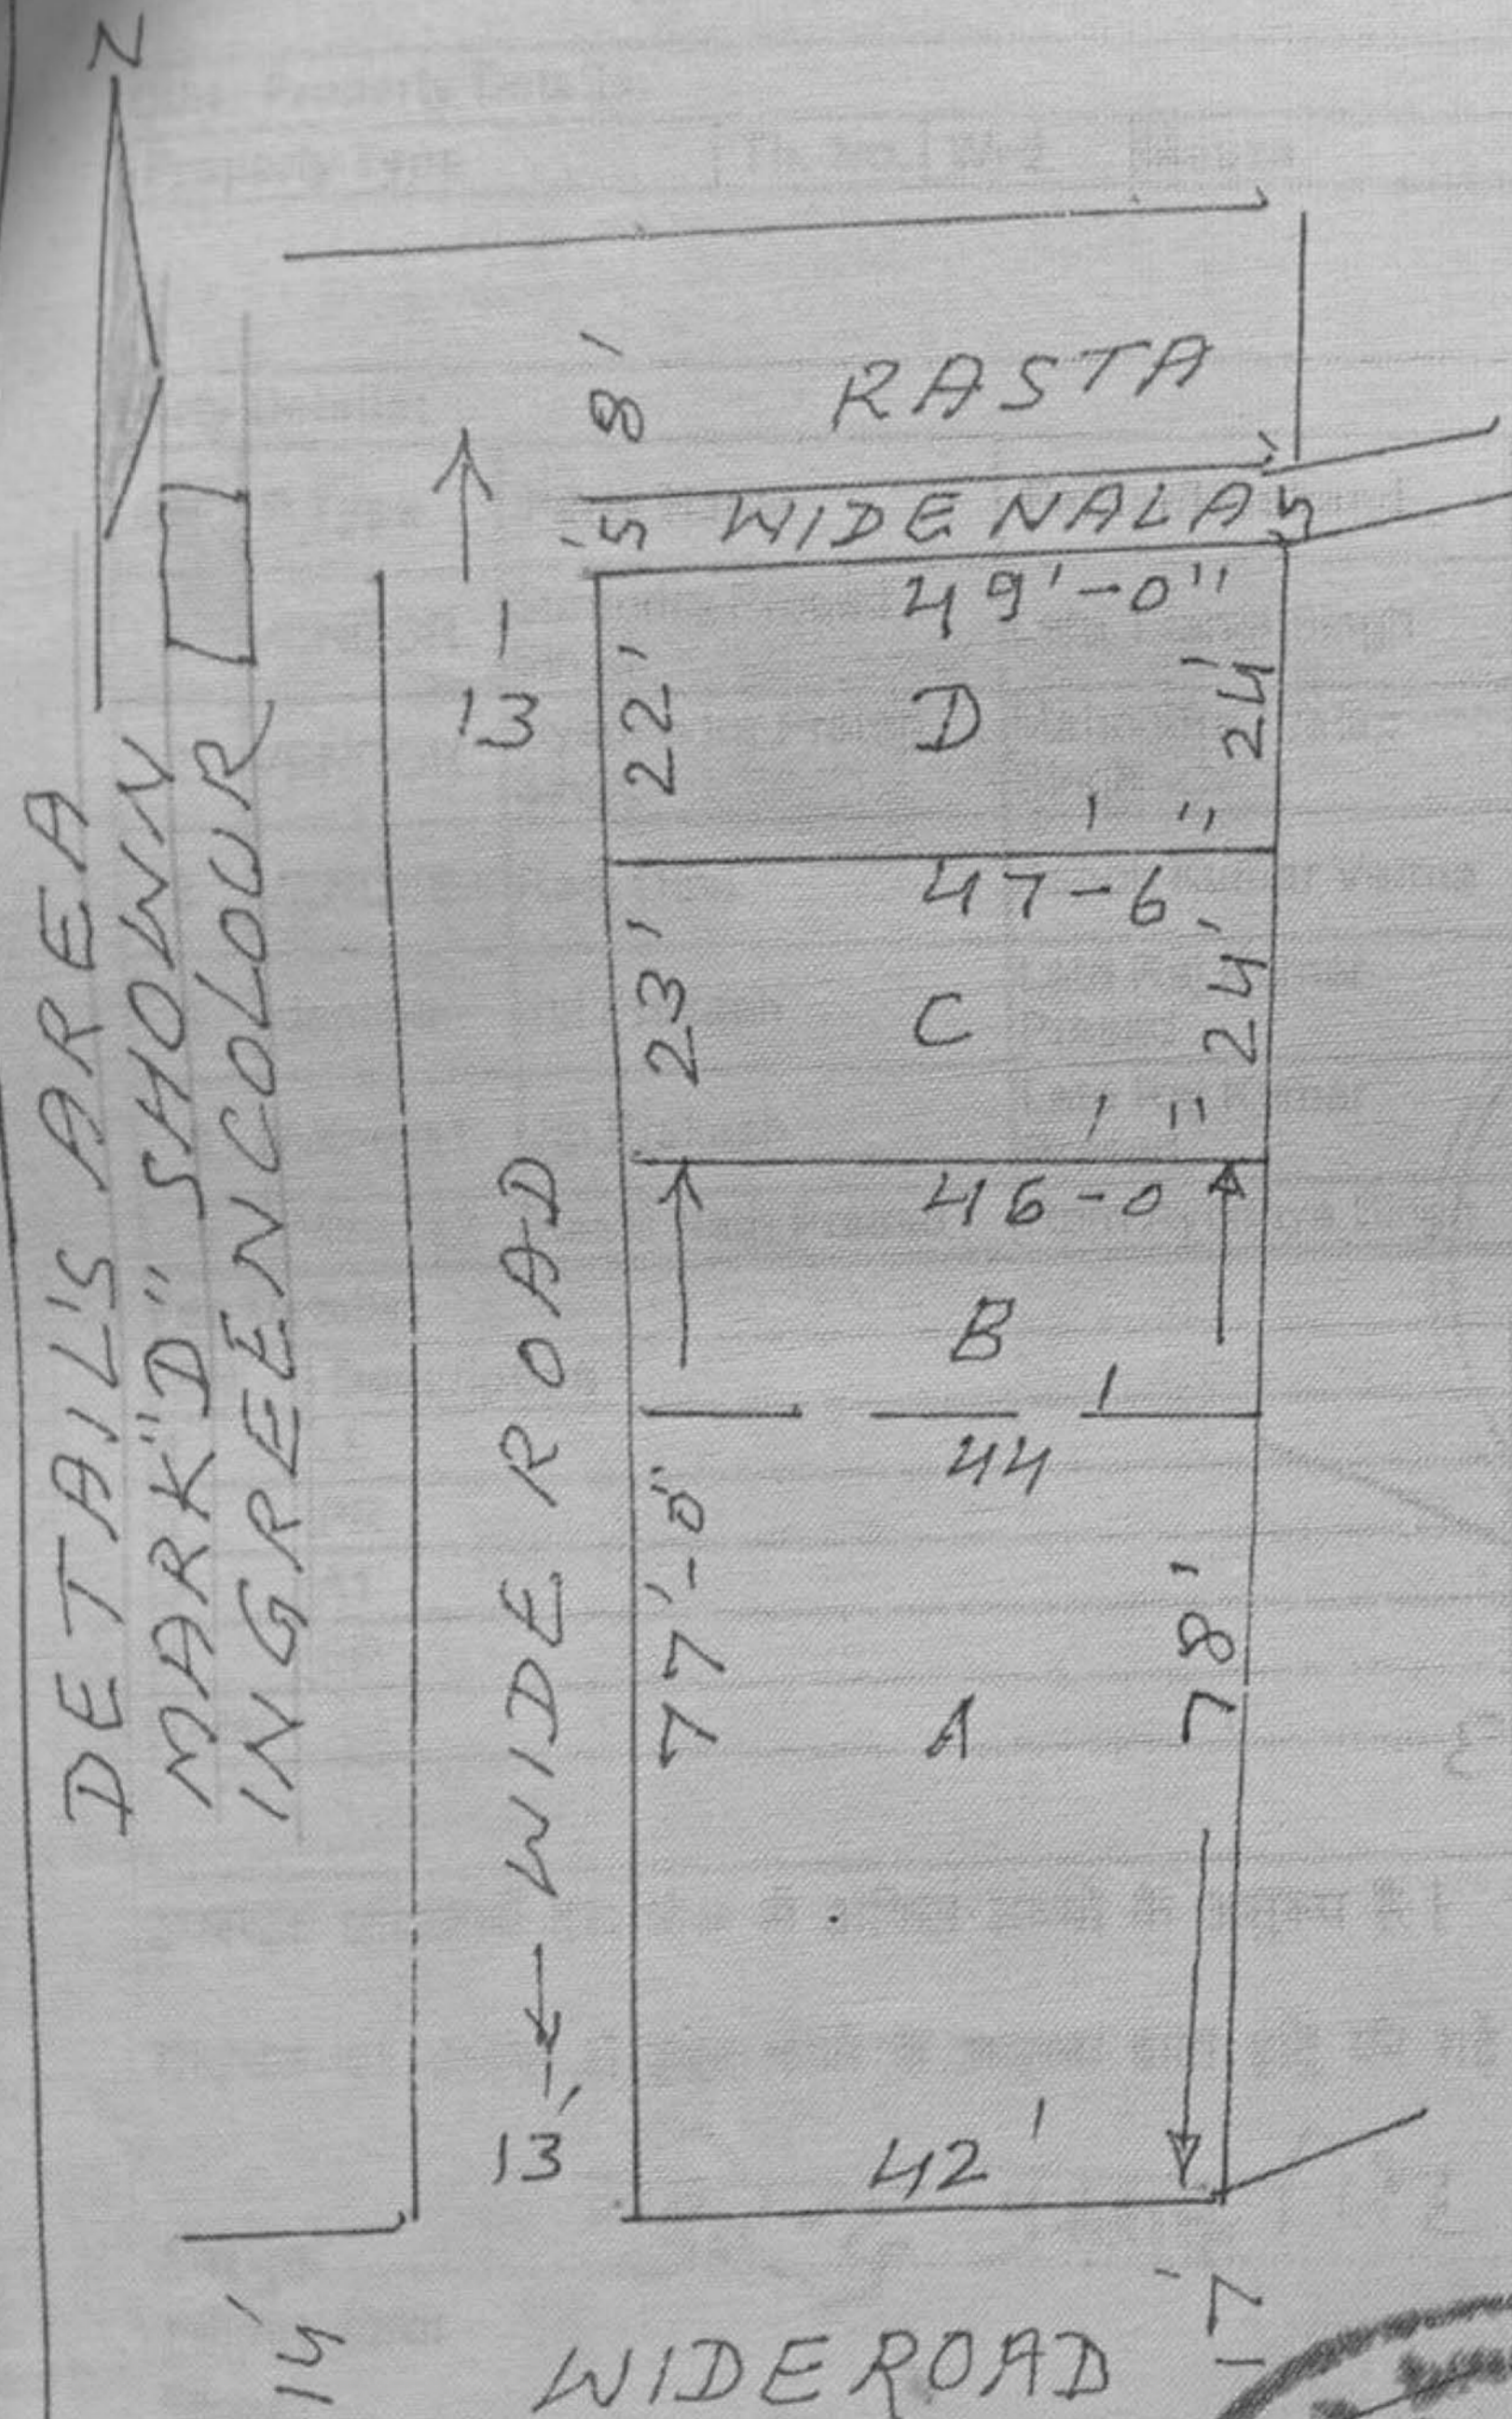 N
DETAIL'S AREA
MARK "D" SHOWN
IN GREEN COLOUR
8' RASTA
5' WIDE NALA 5'
13'
49'-0"
22' D 24'
47'-6"
23' C 24'
46'-0"
B
44'
77'-0" A 78'
WIDE ROAD
13'
42'
14' WIDE ROAD 17'